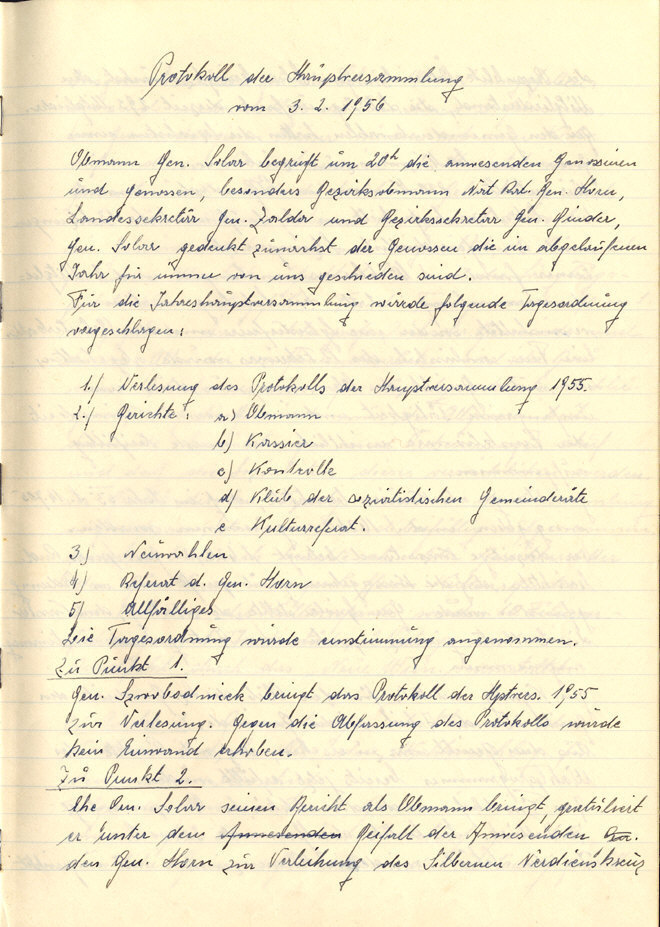 Protokoll der Hauptversammlung
vom 3. 2. 1956
Obmann Gen. Solar begrüßt um 20h die anwesenden Genossinen
und Genossen, besonders Bezirksobmann Nat. Rat. Gen. Horn,
Landessekretär Gen. und Bezirkssekretär Gen. Binder,
Gen. Solar gedenkt zunächst der Genossen die im abgelaufenen
Jahr für immer von uns geschieden sind.
Für die Jahreshauptversammlung wurde folgende Tagesordnung
vorgeschlagen:
1.) Verlesung des Protokolls der Hauptversammlung 1955.
2.) Berichte: a) Obmann
b) Kassier
c) Kontrolle
d) Klub der sozialistischen Gemeinderäte
e Kulturreferat.
3.) Neuwahlen
4) Referat d. Gen. Horn
5) Allfälliges
Die Tagesordnung wurde einstimmig angenommen.
Zu Punkt 1.
Gen. bringt das Protokoll der Hptvers. 1955
zur Verlesung. Gegen die Abfassung des Protokolls wurde
kein Einwand erhoben.
Zu Punkt 2.
Ehe Gen. Solar seinen Bericht als Obmann bringt, gratuliert
er unter dem Anwesenden Beifall der Anwesenden
den Gen. Horn zur Verleihung des Silbernen Verdienskreuz